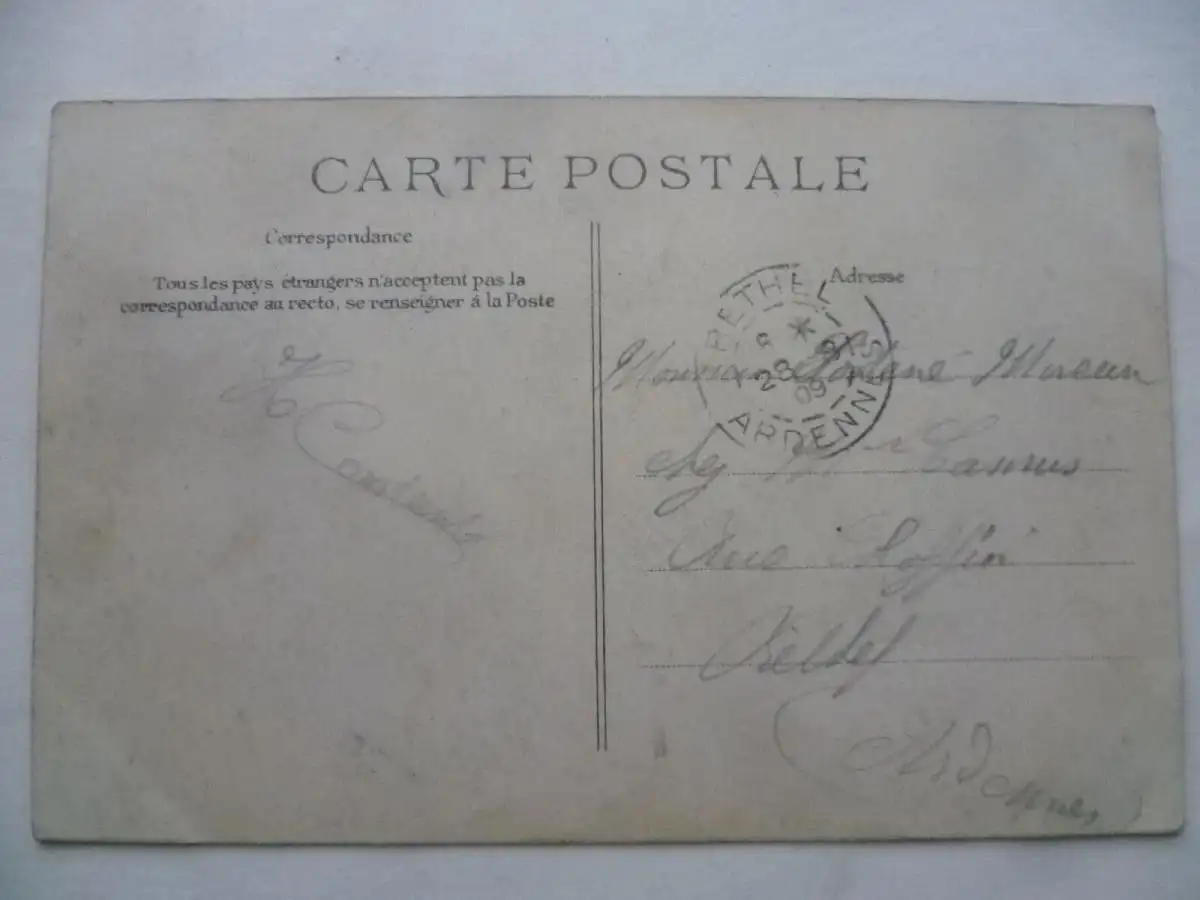 CARTE POSTALE
Correspondance
Tous les pays étrangers n'acceptent pas la
correspondance au recto, se renseigner á la Poste
H Constant
Adresse
RETHEL
28
09
ARDENNES
Moreau
chez Mr
Rue
Rethel
(Ardennes)